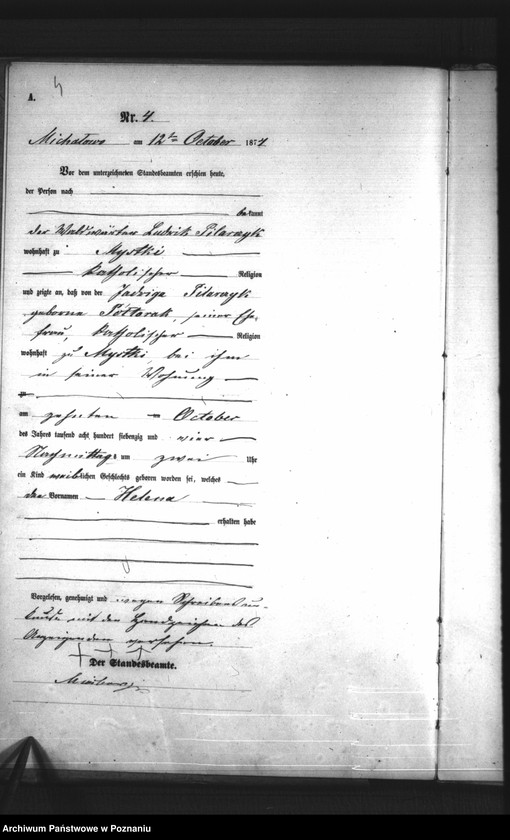 A.
Nr. 4
Michałowo am 12ten October 1874
Vor dem unterzeichneten Standesbeamten erschien heute,
der Person nach
bekannt
der Waldwärter Ludwik Pilarczyk
wohnhaft zu Mystki
katholischer Religion
und zeigte an, daß von der Jadwiga Pilarczyk
geborne Półtorak, seiner Ehe-
frau, katholischer Religion
wohnhaft zu Mystki, bei ihm
in seiner Wohnung
zu
am zehnten October
des Jahres tausend acht hundert siebenzig und vier
Nachmittags um zwei Uhr
ein Kind weiblichen Geschlechts geboren worden sei, welches
den Vornamen Helena
erhalten habe
Vorgelesen, genehmigt und wegen Schreibens un-
kunde mit den Handzeichen des
Anzeigenden versehen.
+ + +
Der Standesbeamte.
Archiwum Państwowe w Poznaniu